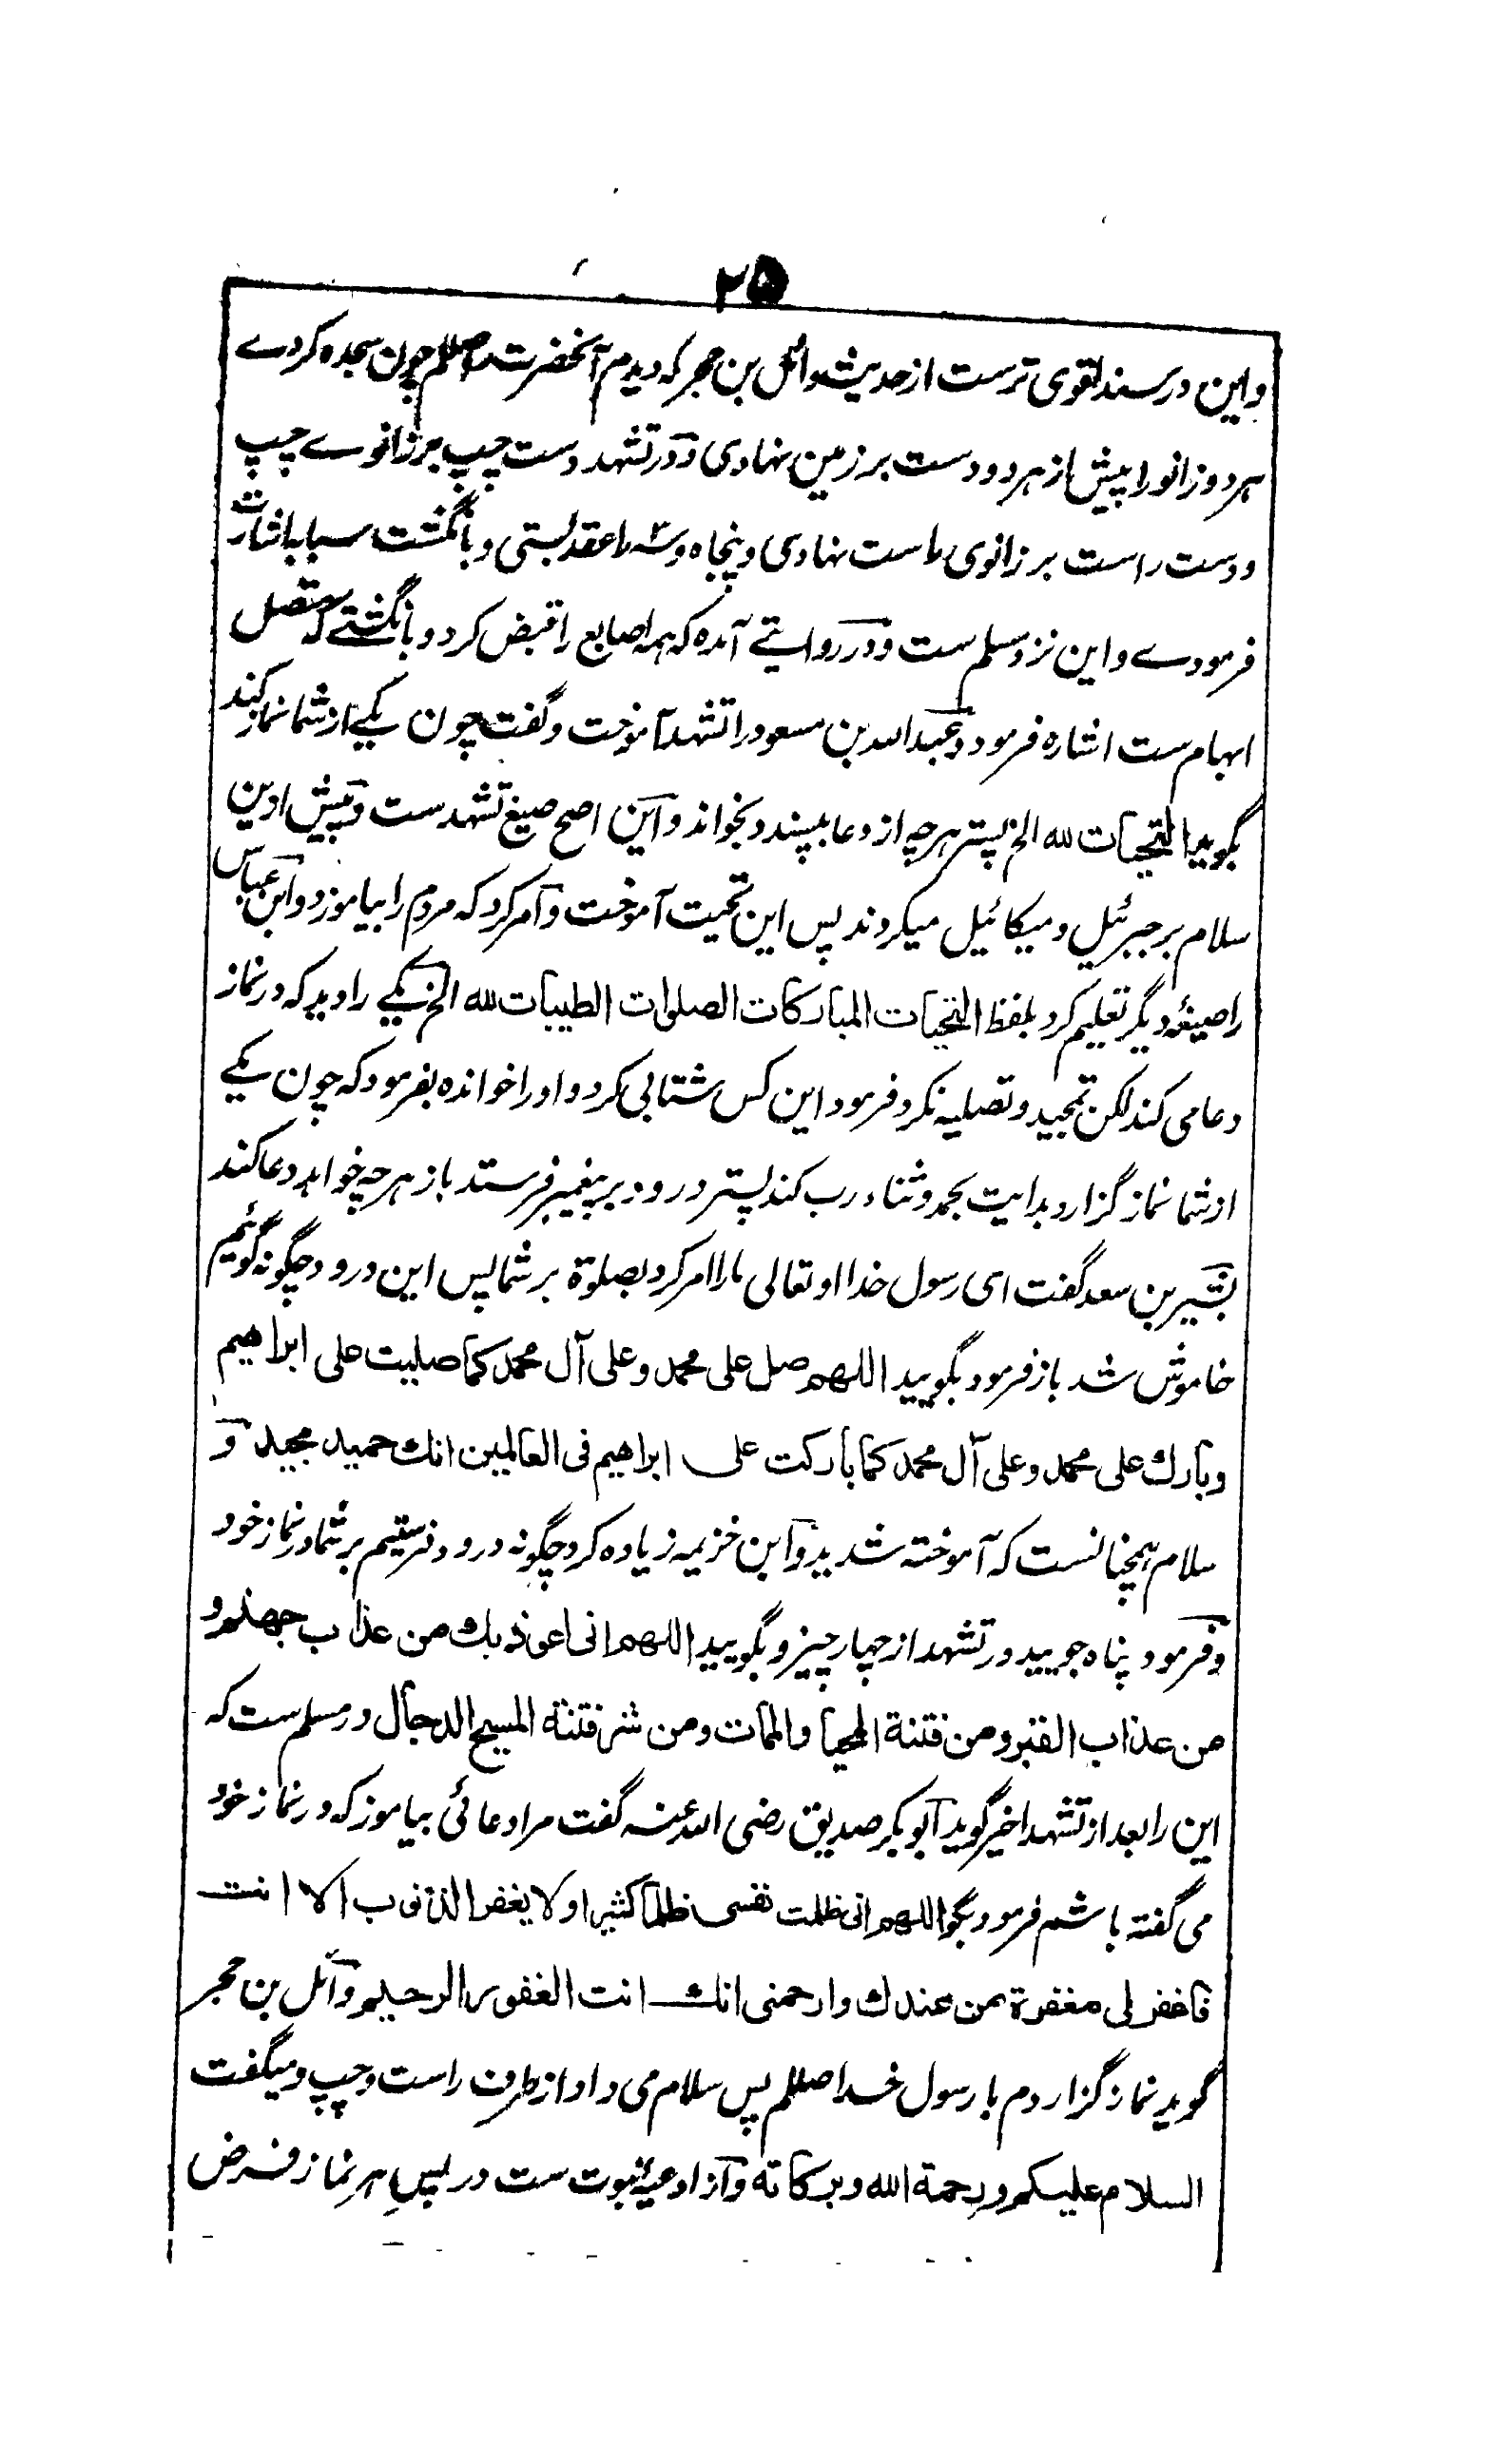 ۲۵
واین در سند قوی ترست از حدیث وائل بن حجر که دیدم آنحضرت را صللم چون سجده کردے
هر دو زانو را پیش از هر دو دست بر زمین نهادی و در تشهد دست چپ بر زانوے چپ
و دست راست بر زانوی راست نهادی و پنجاه و سه را عقد بستی و بانگشت سبابه اشارت
فرمودے و این نزد مسلم ست و در روایتے آمده که همه اصابع را قبض کرد و بانگشتے که متصل
ابهام ست اشاره فرمود و عبدالله بن مسعود را تشهد آموخت و گفت چون یکے از شما نماز کند
بگوید التحیات لله الخ پستر هرچه از دعا بپسندد بخواند و این اصح صیغ تشهدست و پیش ازین
سلام بر جبرئیل و میکائیل میکردند پس این تحیت آموخت و امر کرد که مردم را بیاموزد و ابن عباس
را صیغهٔ دیگر تعلیم کرد بلفظ التحیات المبارکات الصلوات الطیبات لله الخ یکے را دید که در نماز
دعا می کند لکن تمجید و تصلیه نکرد فرمود این کس شتابی کرد و او را خوانده بفرمود که چون یکے
از شما نماز گزارد بدایت بحمد و ثناء رب کند پستر درود بر پیغمبر فرستد باز هرچه خواهد دعا کند
بشیر بن سعد گفت ای رسول خدا او تعالی ما را امر کرد بصلوة بر شما پس این درود چگونه گوئیم
خاموش شد باز فرمود بگویید اللهم صل علی محمد و علی آل محمد کما صلیت علی ابراهیم
وبارك علی محمد وعلی آل محمد کما بارکت علی ابراهیم فی العالمین انك حمید مجید و
سلام همچنانست که آموخته شدید و ابن خزیمه زیاده کرد چگونه درود فرستیم بر شما در نماز خود
و فرمود پناه جویید در تشهد از چهار چیز و بگویید اللهم انی اعوذ بك من عذاب جهنم و
من عذاب القبر ومن فتنة المحیا والممات ومن شر فتنة المسیح الدجال در مسلم ست که
این را بعد از تشهد اخیر گوید ابوبکر صدیق رضی الله عنه گفت مرا دعائی بیاموز که در نماز خود
می گفته باشم فرمود بگو اللهم انی ظلمت نفسی ظلما کثیرا ولا یغفر الذنوب الا انت
فاغفر لی مغفرة من عندك وارحمنی انك انت الغفور الرحیم وائل بن حجر
گوید نماز گزاردم با رسول خدا صللم پس سلام می داد از طرف راست و چپ و میگفت
السلام علیکم ورحمة الله وبرکاته و از ادعیهٔ نبوت ست در پسِ هر نماز فرض